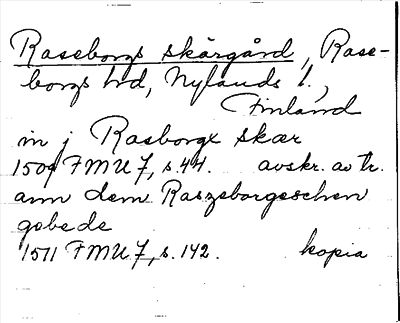 Raseborgs skärgård, Rase-
borgs hd, Nylands l.,
Finland
in j Rasborgx skær
1509 FMU 7, s. 44. avskr. av tr.
ann dem Raszeborgeschen
gebede
1511 FMU 7, s. 142. kopia